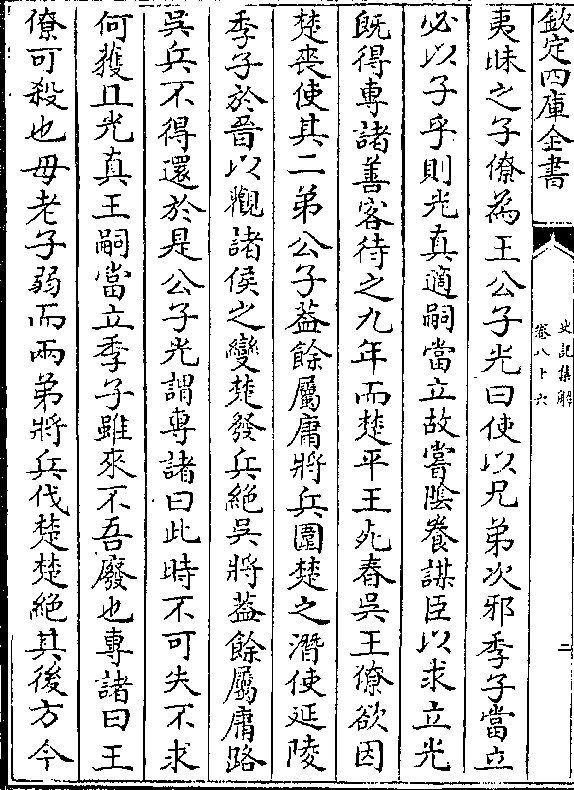 欽定四庫全書
史記集解
卷八十六
二
夷昧之子僚為王公子光曰使以兄弟次邪季子當立
必以子乎則光真適嗣當立故嘗隂養謀臣以求立光
既得專諸善客待之九年而楚平王死春吳王僚欲因
楚喪使其二弟公子葢餘屬庸將兵圍楚之潛使延陵
季子於晉以觀諸侯之變楚發兵絶吳將葢餘屬庸路
吳兵不得還於是公子光謂專諸曰此時不可失不求
何獲且光真王嗣當立季子雖來不吾廢也專諸曰王
僚可殺也母老子弱而兩弟將兵伐楚楚絶其後方今